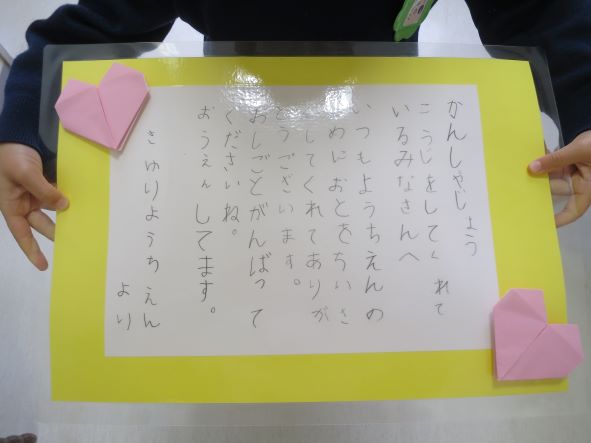 かんしゃじょう
こうじをしてくれて
いるみなさんへ
いつもようちえんの
ためにおとをちいさ
くしてくれてありが
とうございます。
おしごとがんばって
くださいね。
おうえんしてます。
きゅりようちえん
より